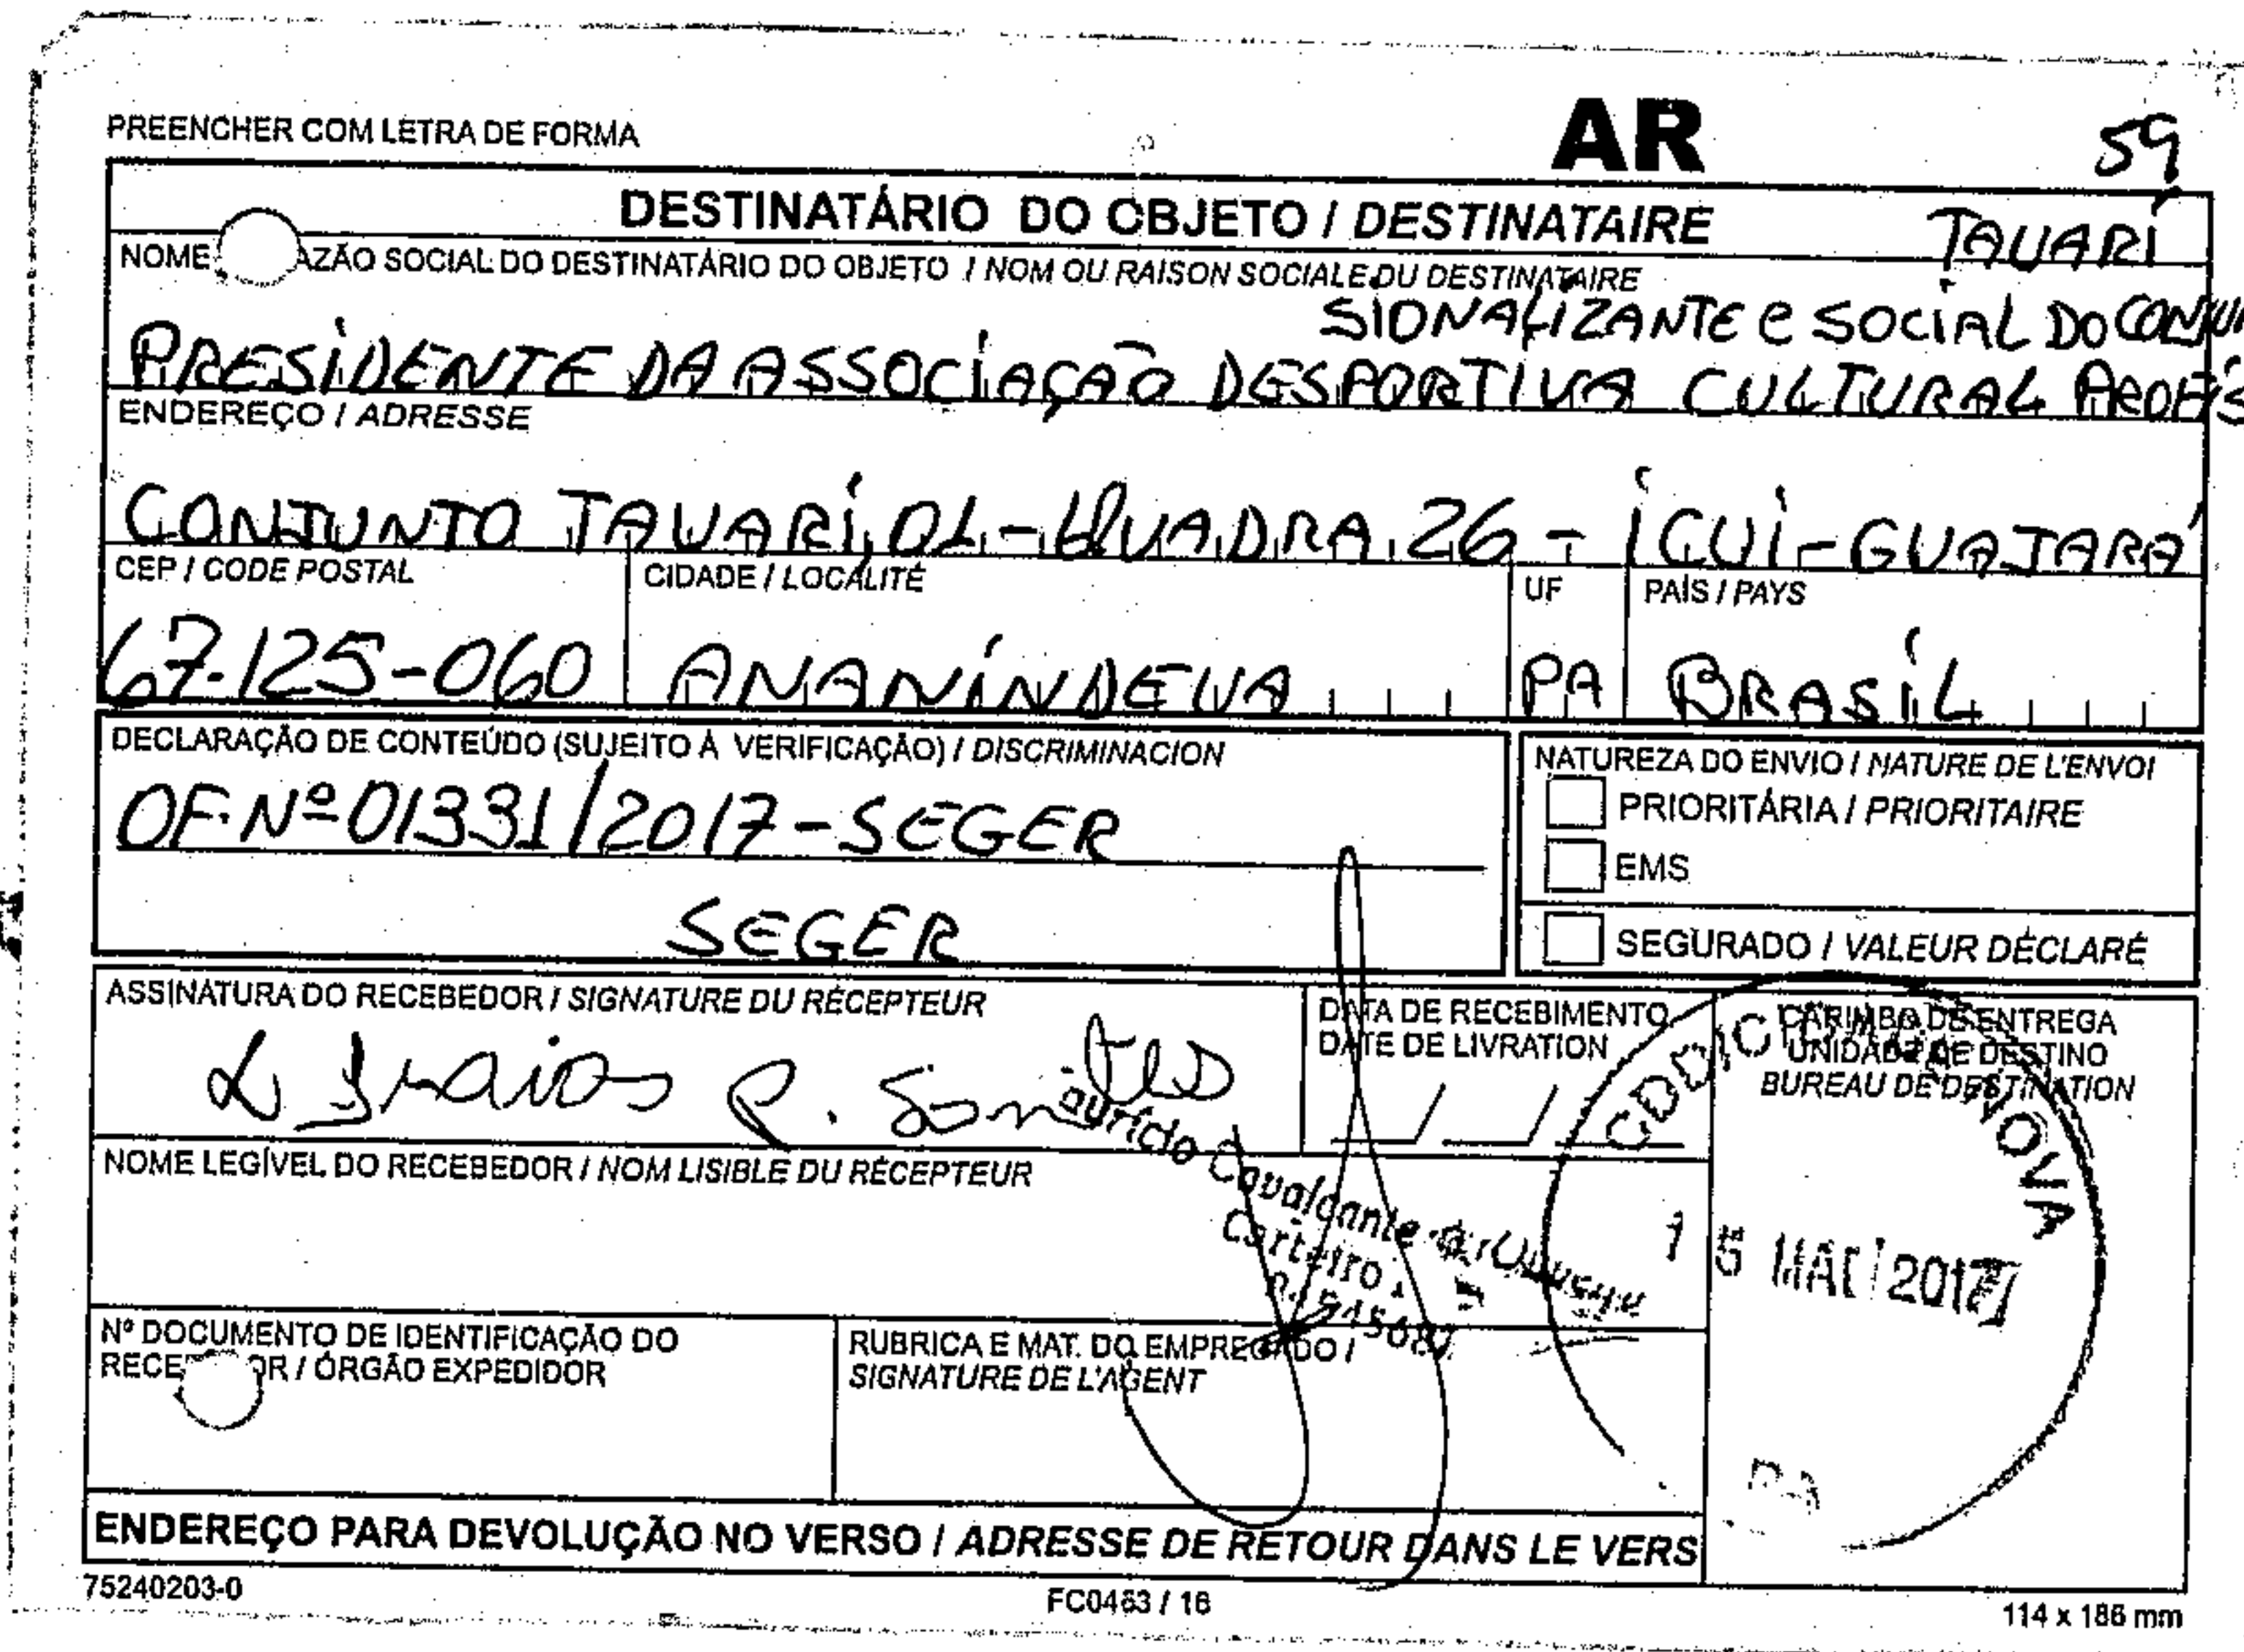 PREENCHER COM LETRA DE FORMA
AR
59
DESTINATÁRIO DO OBJETO / DESTINATAIRE
TAUARÍ
NOME AZÃO SOCIAL DO DESTINATÁRIO DO OBJETO / NOM OU RAISON SOCIALE DU DESTINATAIRE
SIONALIZANTE e SOCIAL DO CONJUN
PRESIDENTE DA ASSOCIAÇÃO DESPORTIVA CULTURAL PROFIS
ENDEREÇO / ADRESSE
CONJUNTO TAUARÍ, 01 - QUADRA 26 - ICUÍ-GUAJARÁ
CEP / CODE POSTAL
CIDADE / LOCALITÉ
UF
PAÍS / PAYS
67.125-060 ANANINDEUA PA BRASIL
DECLARAÇÃO DE CONTEÚDO (SUJEITO À VERIFICAÇÃO) / DISCRIMINACION
OF. Nº 01331/2017 - SEGER
SEGER
NATUREZA DO ENVIO / NATURE DE L'ENVOI
PRIORITÁRIA / PRIORITAIRE
EMS
SEGURADO / VALEUR DÉCLARÉ
ASSINATURA DO RECEBEDOR / SIGNATURE DU RÉCEPTEUR
DATA DE RECEBIMENTO
DATE DE LIVRATION
CARIMBO DE ENTREGA
UNIDADE DE DESTINO
BUREAU DE DESTINATION
CDD NOVA
15 MAI 2017
PA
NOME LEGÍVEL DO RECEBEDOR / NOM LISIBLE DU RÉCEPTEUR
Cavalcante
Carteiro
Nº DOCUMENTO DE IDENTIFICAÇÃO DO
RECE OR / ÓRGÃO EXPEDIDOR
RUBRICA E MAT. DO EMPREGADO /
SIGNATURE DE L'AGENT
ENDEREÇO PARA DEVOLUÇÃO NO VERSO / ADRESSE DE RETOUR DANS LE VERS
75240203-0
FC0463 / 16
114 x 186 mm